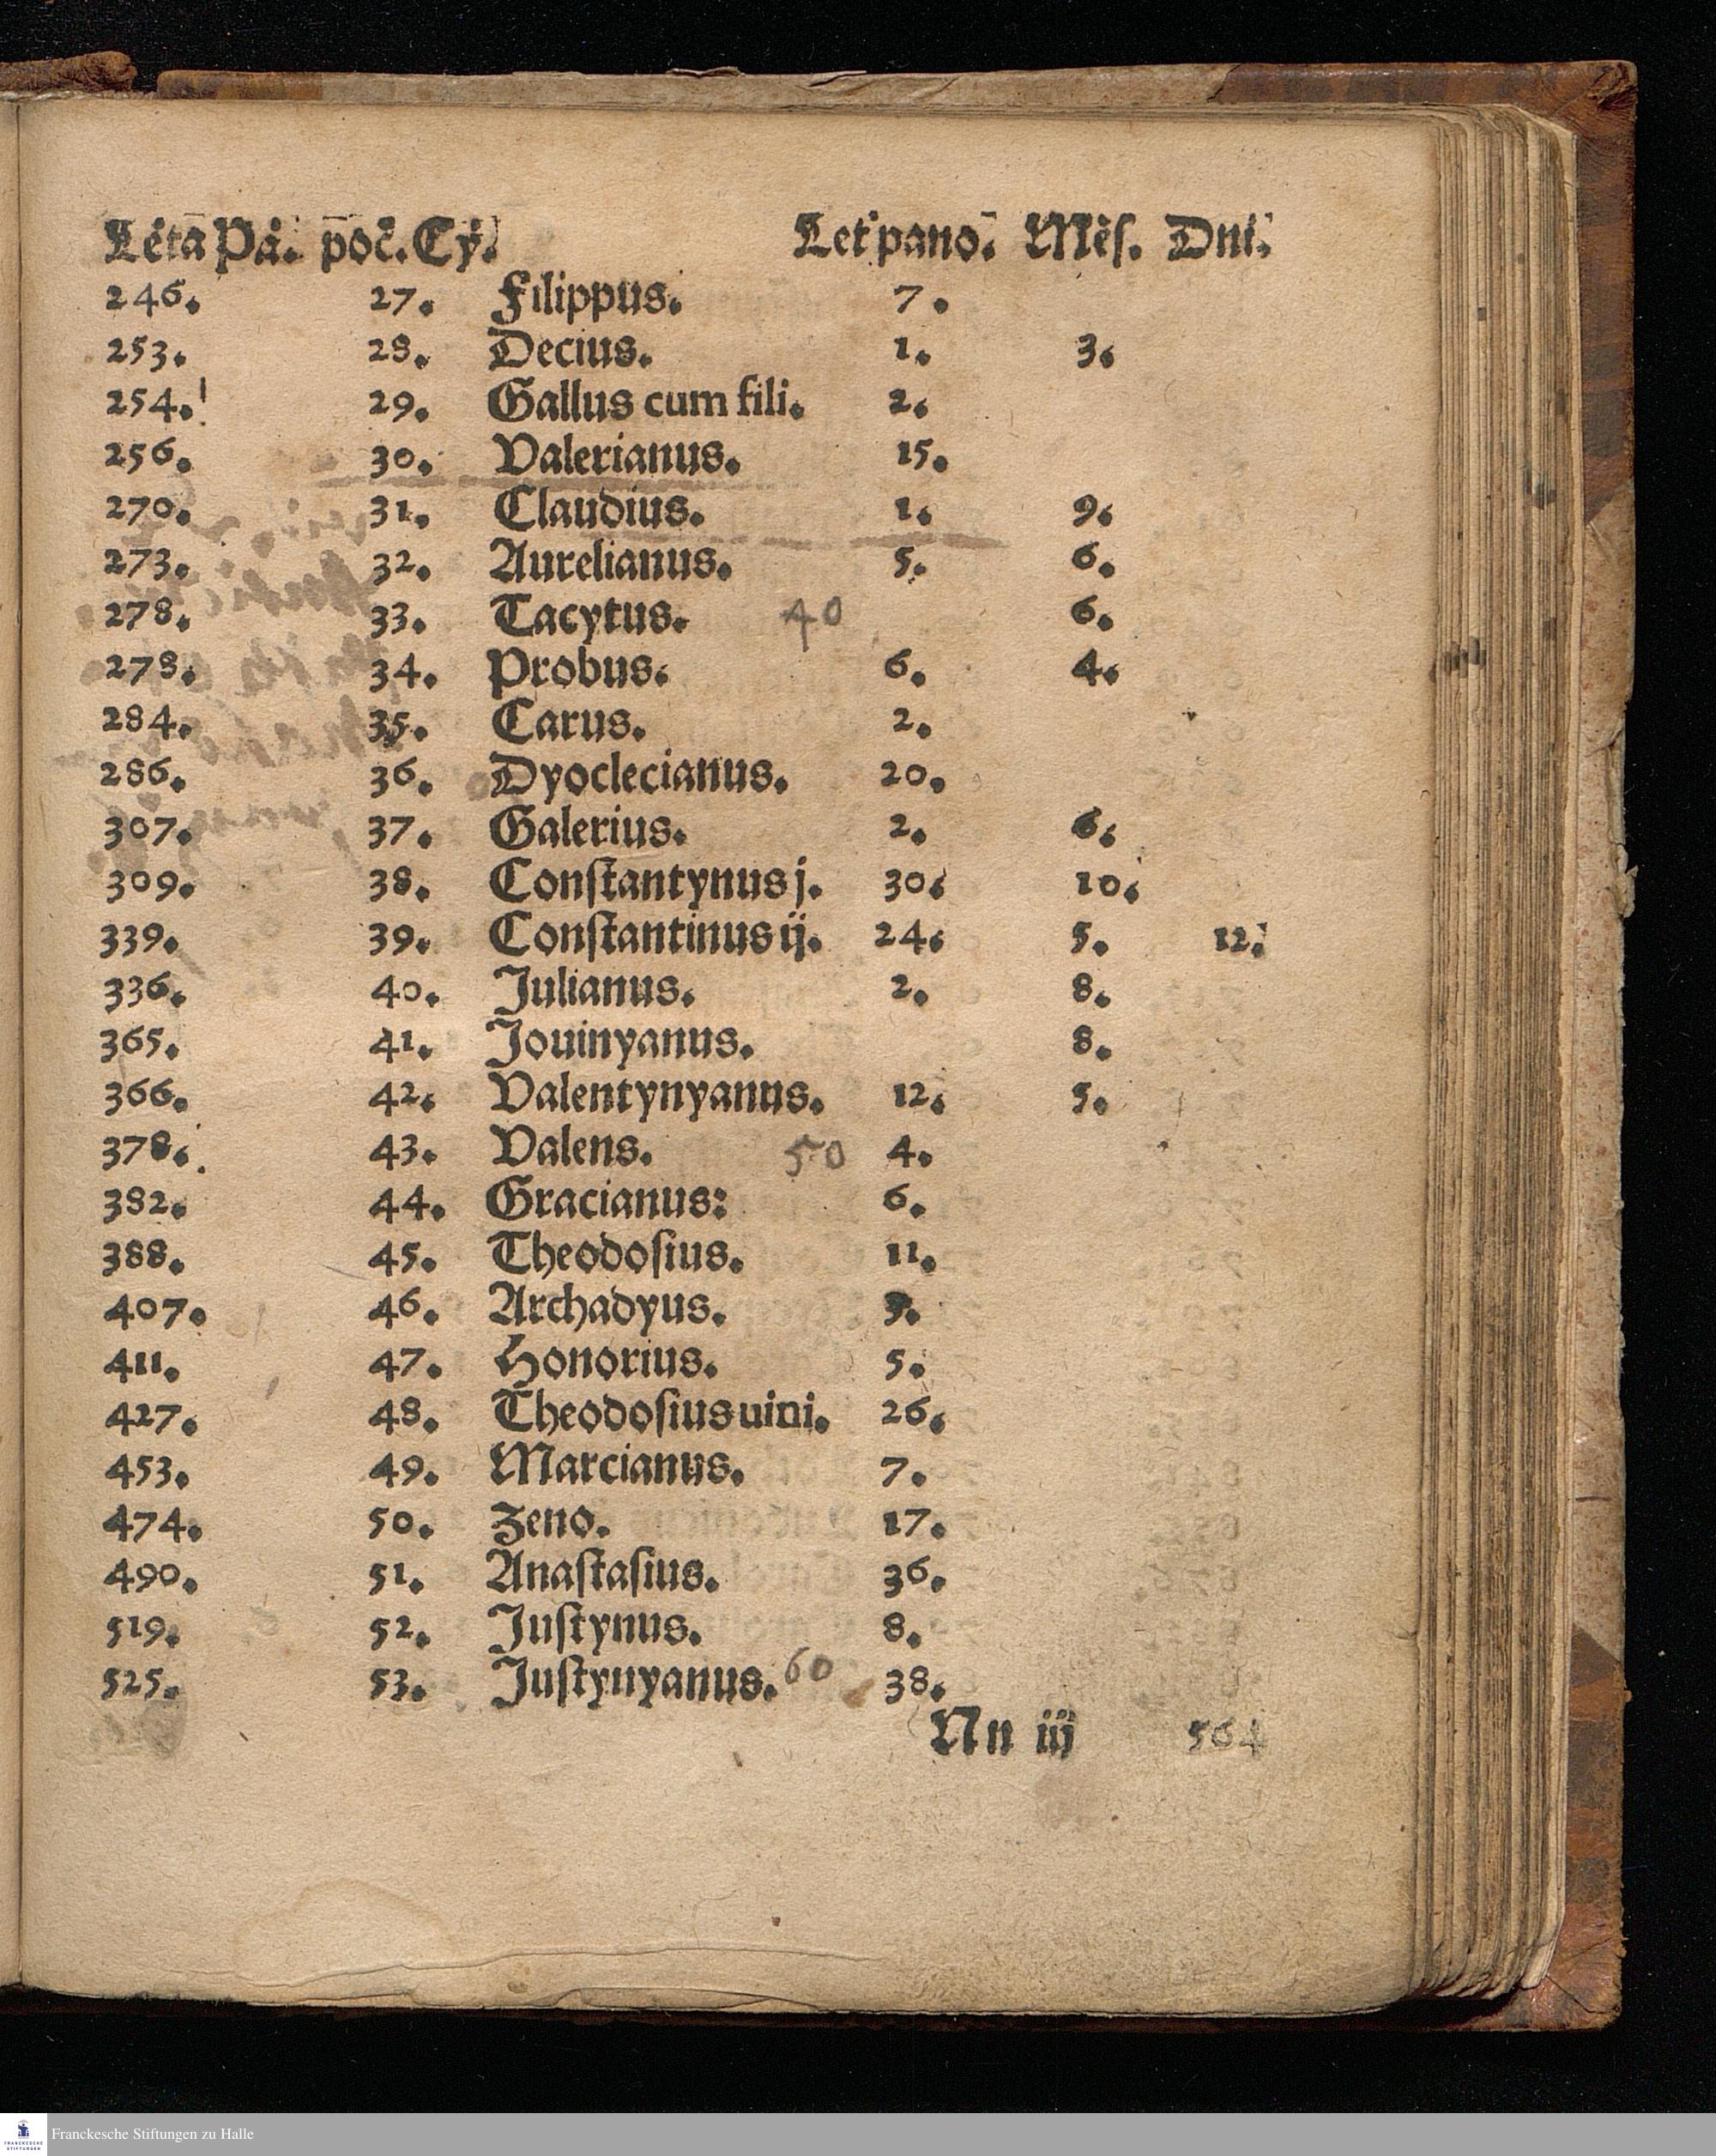 Létā Pá. poč. Cý. Let̄ panō. Měs. Dní.
246. 27. Filippus. 7.
253. 28. Decius. 1. 3.
254. 29. Gallus cum fili. 2.
256. 30. Valerianus. 15.
270. 31. Claudius. 1. 9.
273. 32. Aurelianus. 5. 6.
278. 33. Tacytus. 40 6.
278. 34. Probus. 6. 4.
284. 35. Carus. 2.
286. 36. Dyoclecianus. 20.
307. 37. Galerius. 2. 6.
309. 38. Conſtantynus j. 30. 10.
339. 39. Conſtantinus ij. 24. 5. 12.
336. 40. Julianus. 2. 8.
365. 41. Jouinyanus. 8.
366. 42. Valentynyanus. 12. 5.
378. 43. Valens. 50 4.
382. 44. Gracianus: 6.
388. 45. Theodoſius. 11.
407. 46. Archadyus.
411. 47. Honorius. 5.
427. 48. Theodoſius uini. 26.
453. 49. Marcianus. 7.
474. 50. Zeno. 17.
490. 51. Anaſtaſius. 36.
519. 52. Juſtynus. 8.
525. 53. Juſtynyanus. 60 38.
Nn iij 564
Franckesche Stiftungen zu Halle